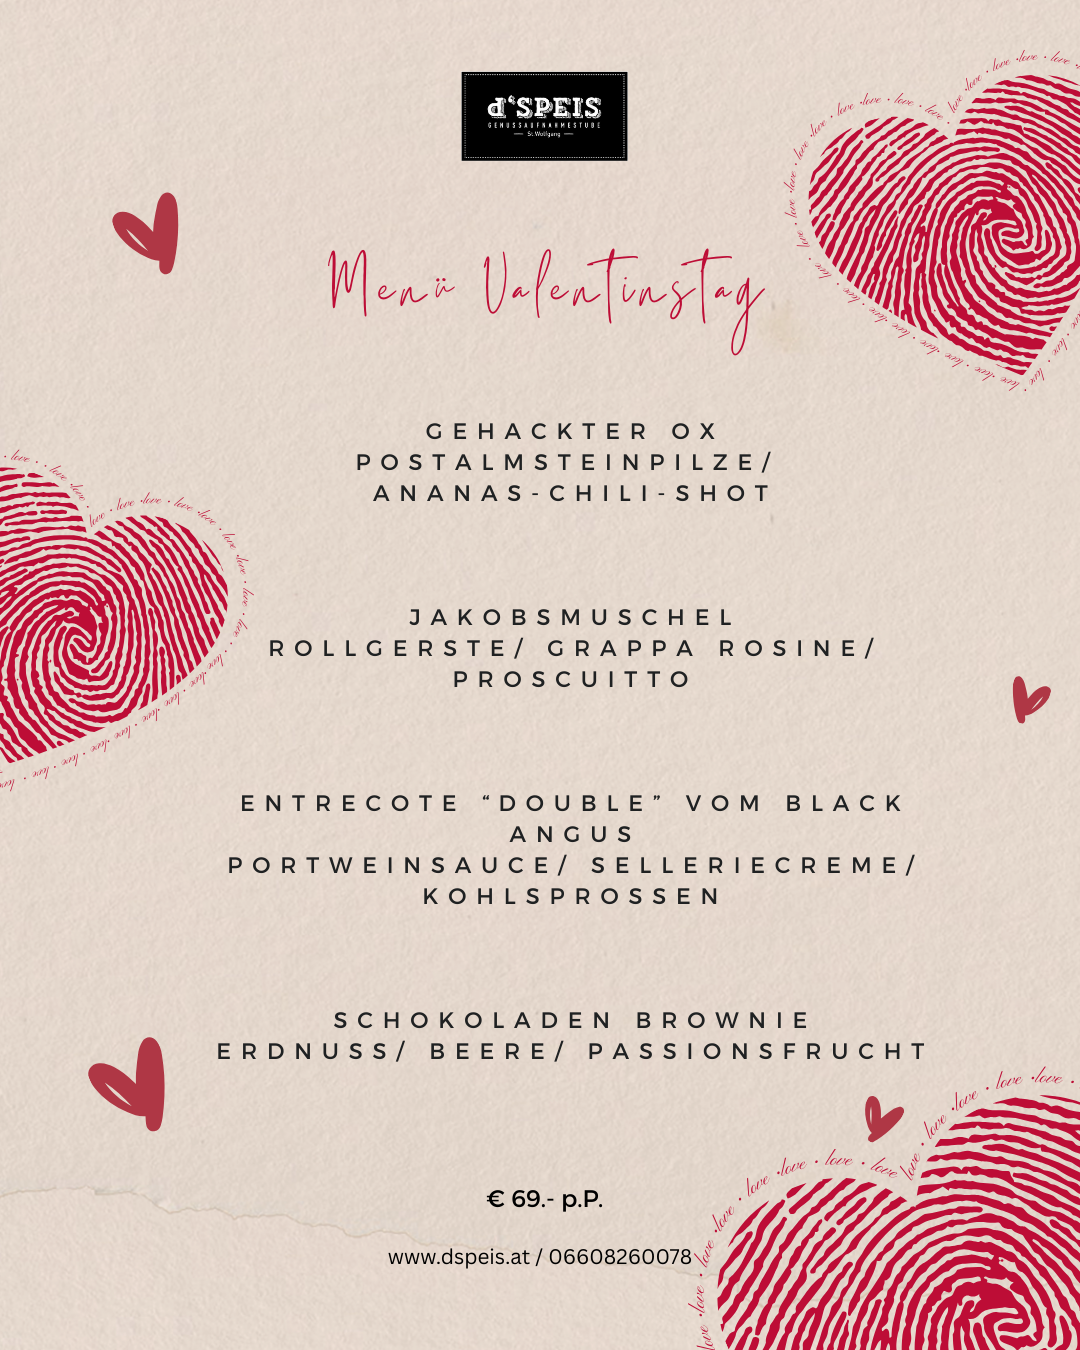 d'SPEIS
GENUSSAUFNAHMESTUBE
St. Wolfgang
Menü Valentinstag
GEHACKTER OX
POSTALMSTEINPILZE/
ANANAS-CHILI-SHOT
JAKOBSMUSCHEL
ROLLGERSTE/ GRAPPA ROSINE/
PROSCUITTO
ENTRECOTE “DOUBLE” VOM BLACK
ANGUS
PORTWEINSAUCE/ SELLERIECREME/
KOHLSPROSSEN
SCHOKOLADEN BROWNIE
ERDNUSS/ BEERE/ PASSIONSFRUCHT
€ 69.- p.P.
www.dspeis.at / 06608260078